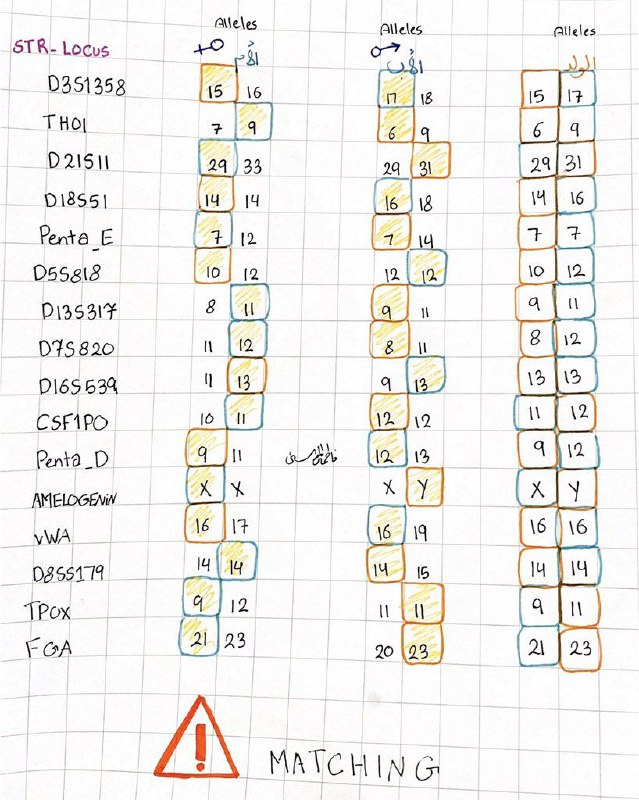 Alleles Alleles Alleles
STR-LOCUS الأم الأب الولد
D3S1358 15 16 17 18 15 17
TH01 7 9 6 9 6 9
D21S11 29 33 29 31 29 31
D18S51 14 14 16 18 14 16
Penta_E 7 12 7 14 7 7
D5S818 10 12 12 12 10 12
D13S317 8 11 9 11 9 11
D7S820 11 12 8 11 8 12
D16S539 11 13 9 13 13 13
CSF1PO 10 11 12 12 11 12
Penta_D 9 11 12 13 9 12
AMELOGENIN X X X Y X Y
vWA 16 17 16 19 16 16
D8SS179 14 14 14 15 14 14
TPOX 9 12 11 11 9 11
FGA 21 23 20 23 21 23
! MATCHING